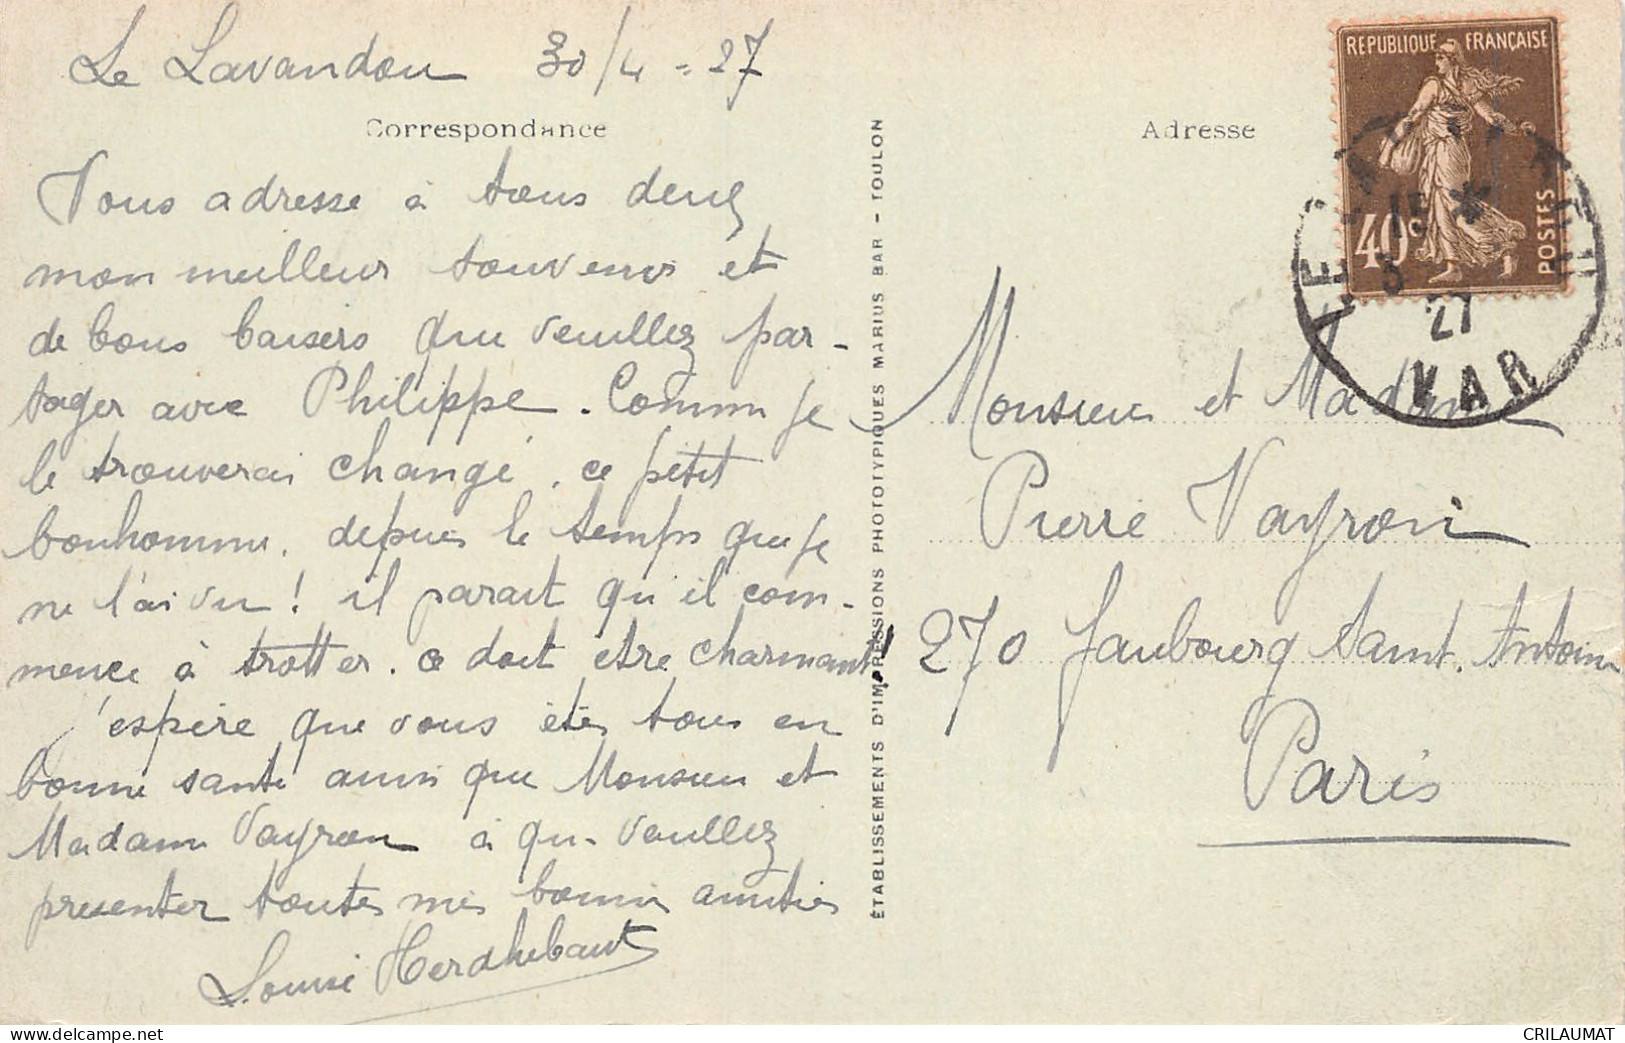 Le Lavandou 30/4-27
Correspondance
Vous adresse à tous deux
mon meilleur souvenir et
de bons baisers que veuillez par-
tager avec Philippe. Comme je
le trouverai changé, ce petit
bonhomme, depuis le temps que je
ne l'ai vu ! il parait qu'il com-
mence à trotter. ce doit etre charmant!
J'espère que vous êtes tous en
bonne santé ainsi que Monsieur et
Madame Vayron à qui veuillez
presenter toutes mes bonnes amitiés
Louise
ÉTABLISSEMENTS D'IMPRESSIONS PHOTOTYPIQUES MARIUS BAR - TOULON
Adresse
REPUBLIQUE FRANÇAISE
40c
POSTES
27
VAR
Monsieur et Madame
Pierre Vayron
270 faubourg Saint. Antoine
Paris
https://www.delcampe.net
CRILAUMAT